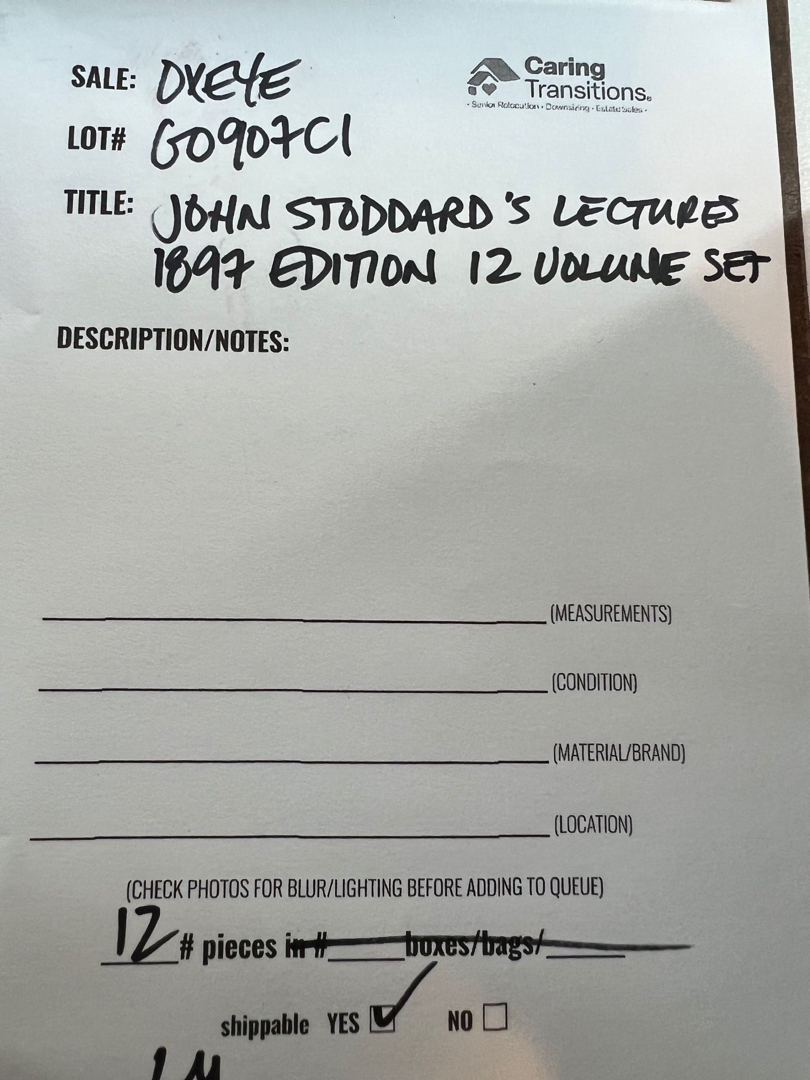 SALE: OXEYE
Caring
Transitions®
• Senior Relocation • Downsizing • Estate Sales •
LOT# G0907C1
TITLE: JOHN STODDARD'S LECTURES
1897 EDITION 12 VOLUME SET
DESCRIPTION/NOTES:
(MEASUREMENTS)
(CONDITION)
(MATERIAL/BRAND)
(LOCATION)
(CHECK PHOTOS FOR BLUR/LIGHTING BEFORE ADDING TO QUEUE)
12 # pieces in # boxes/bags/
shippable YES NO